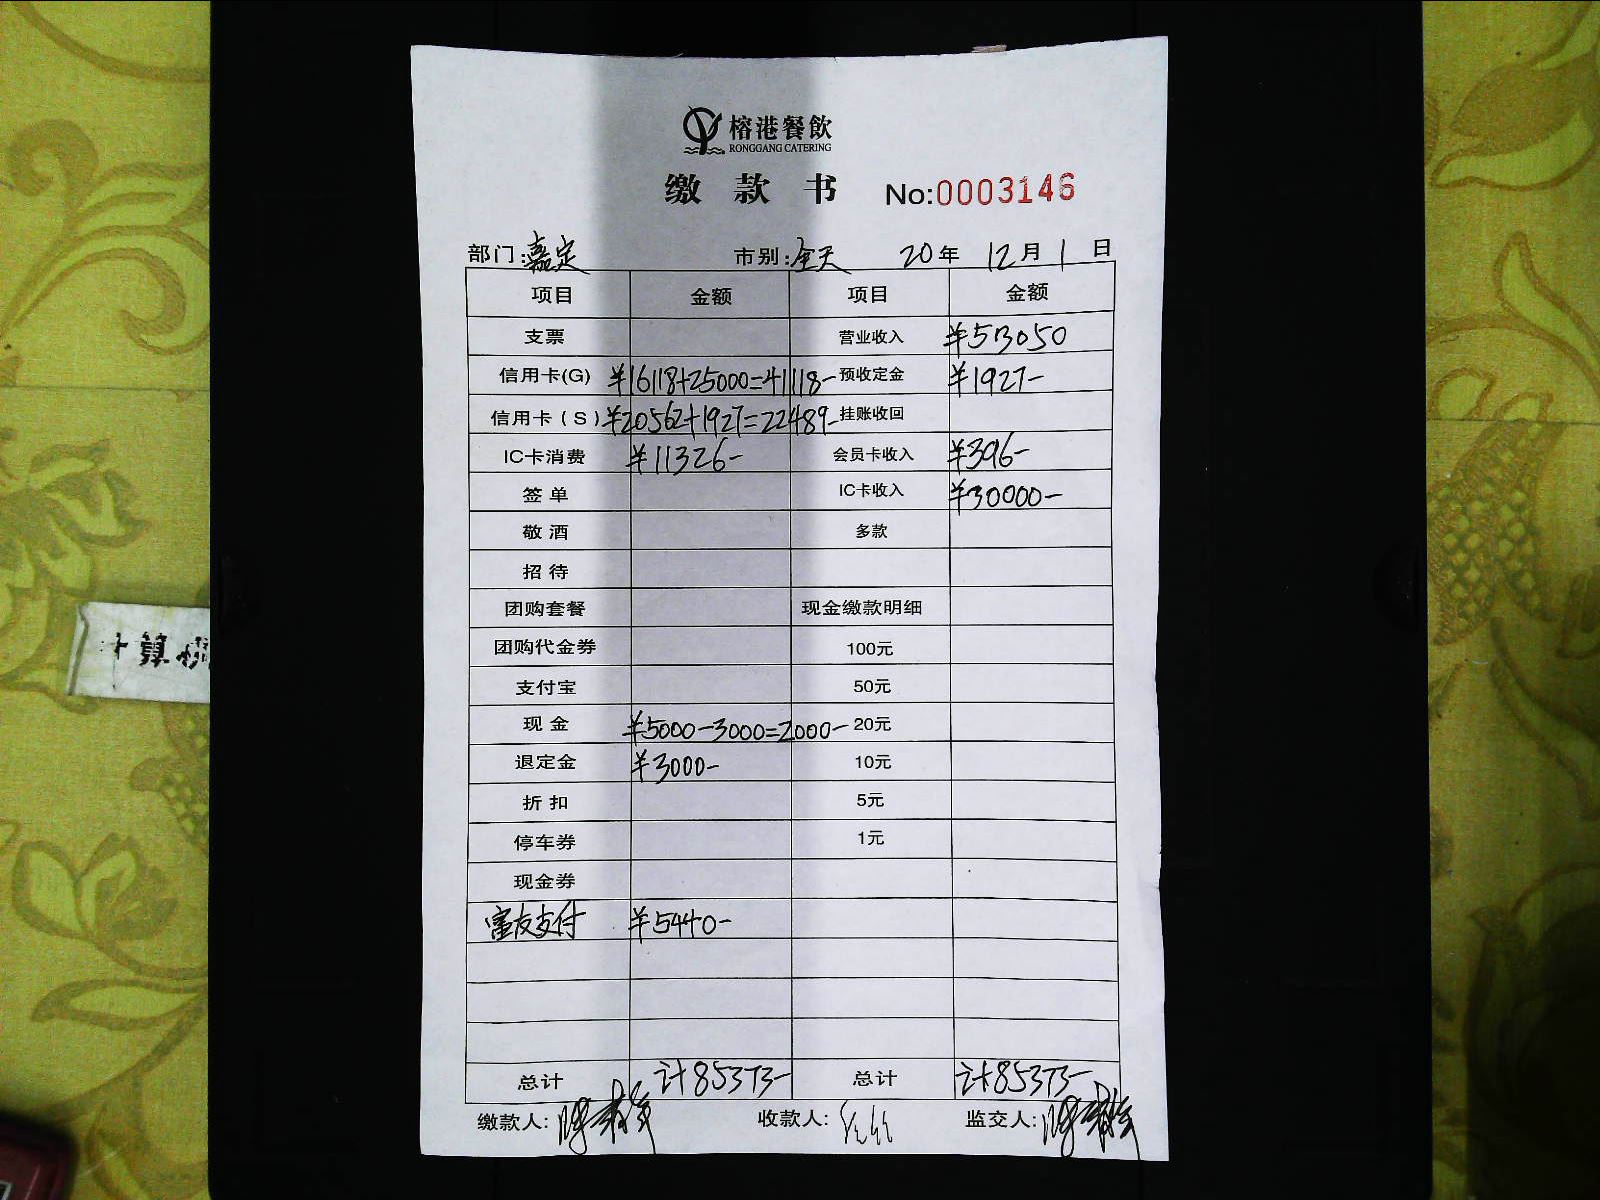 榕港餐飲
RONGGANG CATERING
缴款书 No:0003146
部门:嘉定 市别:全天 20年 12月 1日
项目 金额 项目 金额
支票 营业收入 ¥53050
信用卡(G) ¥16118+25000=41118- 预收定金 ¥1927-
信用卡(S) ¥20562+1927=22489- 挂账收回
IC卡消费 ¥11326- 会员卡收入 ¥396-
签单 IC卡收入 ¥30000-
敬酒 多款
招待
团购套餐 现金缴款明细
团购代金券 100元
支付宝 50元
现金 ¥5000-3000=2000- 20元
退定金 ¥3000- 10元
折扣 5元
停车券 1元
现金券
富友支付 ¥5440-
总计 计85373- 总计 计85373-
缴款人: 收款人: 监交人:
算